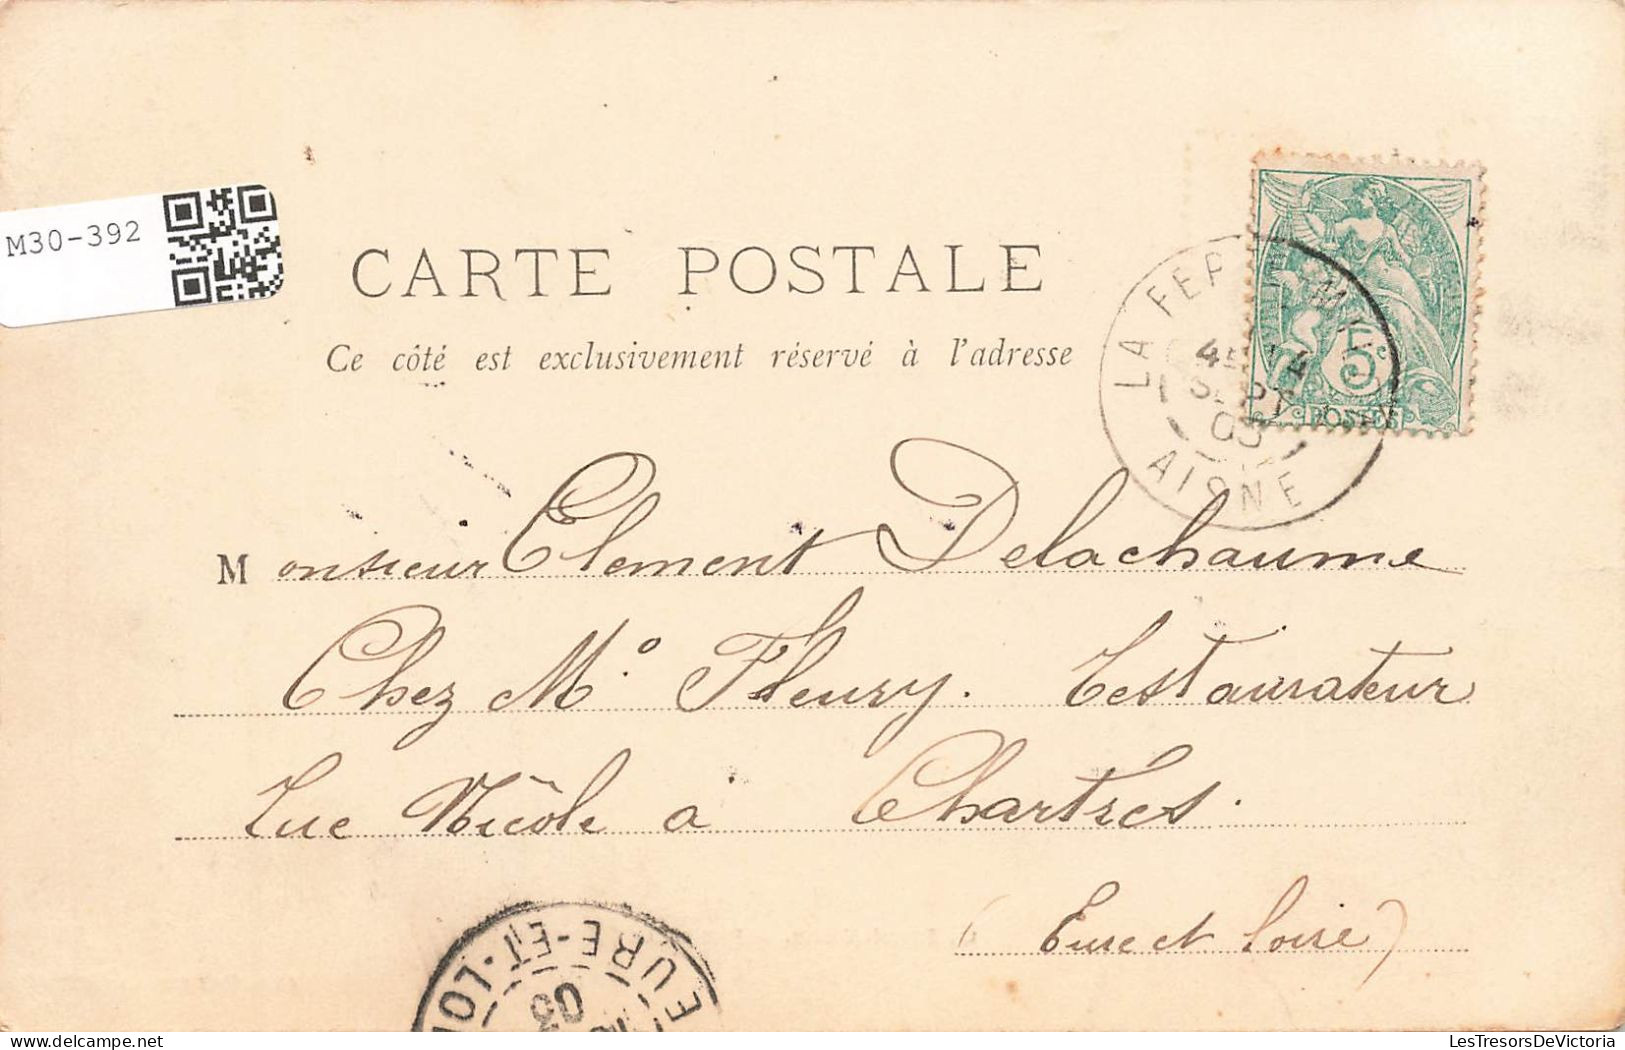 M30-392
CARTE POSTALE
Ce côté est exclusivement réservé à l'adresse
LA FER MI
4E 14
SEPT
03
AISNE
5c
POSTES
Monsieur Clement Delachaume
Chez Mo. Fleury. Restaurateur
Rue Nicole a Chartres.
(Eure et Loire)
EURE-ET-LOI
03
LesTresorsDeVictoria